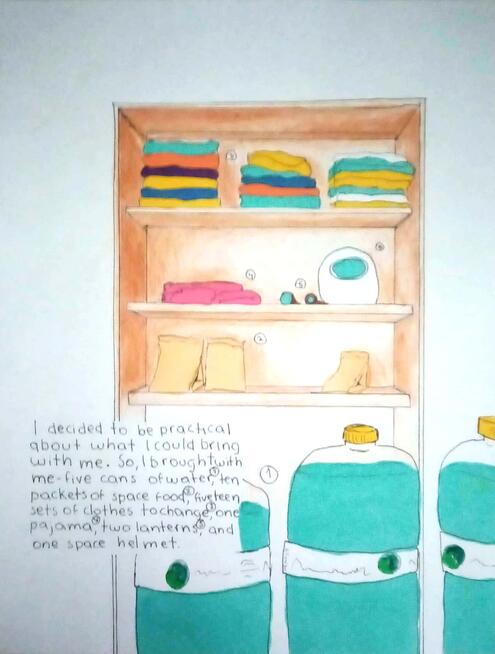 ③
⑥
④
⑤
②
I decided to be practical
about what I could bring
with me. So, I brought with
me-five cans of water,① ten
packets of space food,② fiveteen
sets of clothes to change,③ one
pajama,④ two lanterns,⑤ and
one space helmet.
①